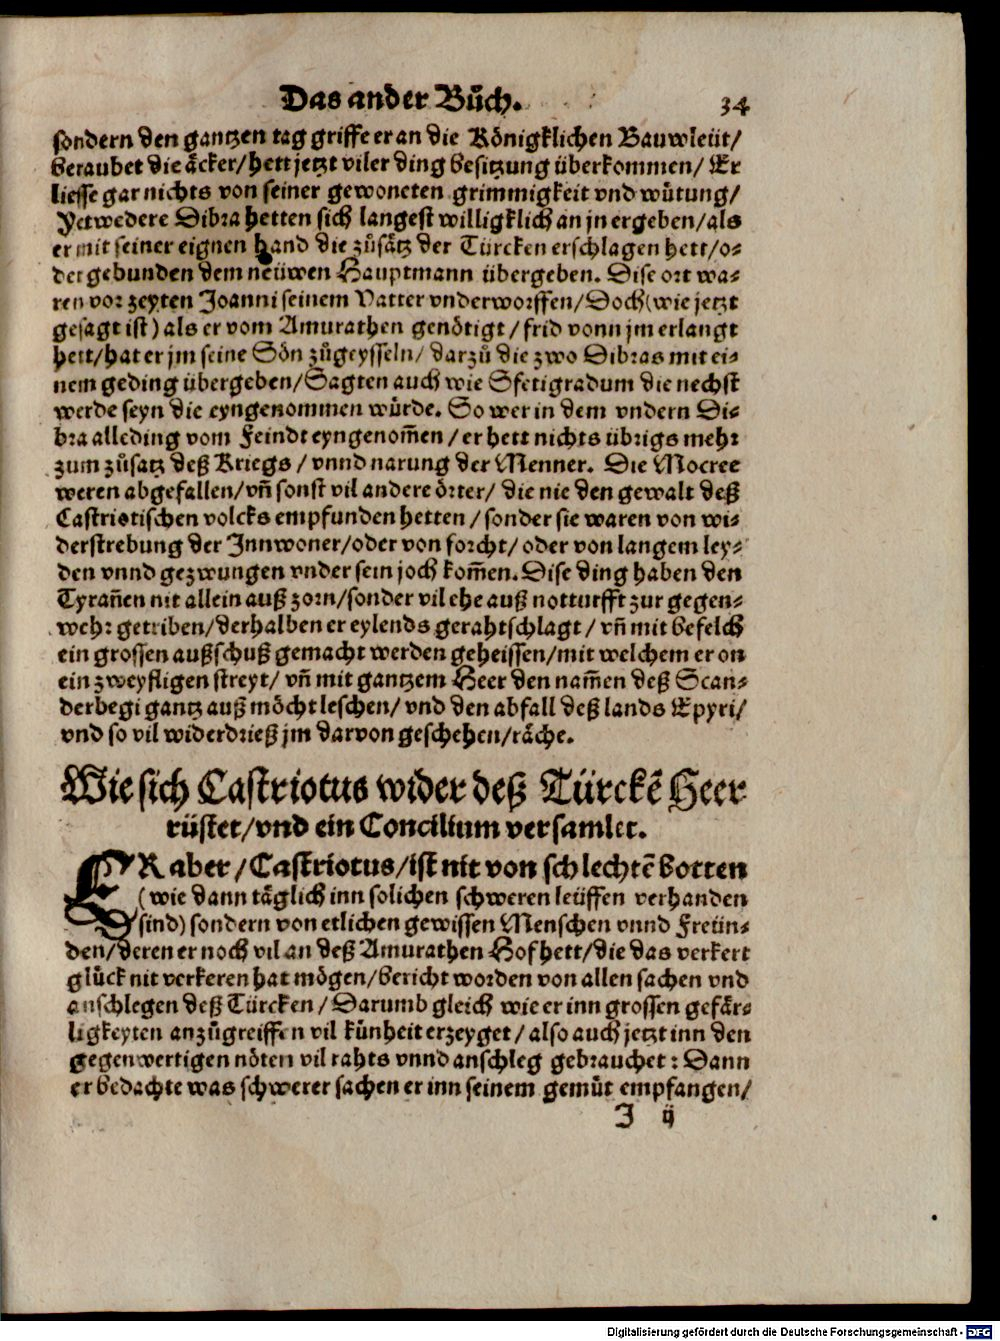 Das ander Bůch. 34
sondern den gantzen tag griffe er an die Königklichen Bauwleüt/
beraubet die äcker/ hett jetzt viler ding besitzung überkommen/ Er
liesse gar nichts von seiner gewoneten grimmigkeit vnd wůtung/
Yetwedere Dibra hetten sich langest willigklich an jn ergeben/ als
er mit seiner eignen hand die zůsätz der Türcken erschlagen hett/ o-
der gebunden dem neüwen Hauptmann übergeben. Dise ort wa-
ren vor zeyten Joanni seinem Vatter vnderworffen/ Doch (wie jetzt
gesagt ist) als er vom Amurathen genötigt/ frid vonn jm erlangt
hett/ hat er jm seine Sön zů geysseln/ darzů die zwo Dibras mit ei-
nem geding übergeben/ Sagten auch wie Sfetigradum die nechst
werde seyn die eyngenommen würde. So wer in dem vndern Di-
bra alle ding vom Feindt eyngenom̃en/ er hett nichts übrigs mehr
zum zůsatz deß Kriegs/ vnnd narung der Menner. Die Mocree
weren abgefallen/ vñ sonst vil andere örter/ die nie den gewalt deß
Castriotischen volcks empfunden hetten/ sonder sie waren von wi-
derstrebung der Innwoner/ oder von forcht/ oder von langem ley-
den vnnd gezwungen vnder sein joch kom̃en. Dise ding haben den
Tyrañen nit allein auß zorn/ sonder vil ehe auß notturfft zur gegen-
wehr getriben/ derhalben er eylends gerahtschlagt/ vñ mit befelch
ein grossen außschuß gemacht werden geheissen/ mit welchem er on
ein zweyfligen streyt/ vñ mit gantzem Heer den nam̃en deß Scan-
derbegi gantz auß möcht leschen/ vnd den abfall deß lands Epyri/
vnd so vil widerdrieß jm darvon geschehen/ räche.
Wie sich Castriotus wider deß Türckē Heer
rüstet/ vnd ein Concilium versamlet.
ER aber/ Castriotus/ ist nit von schlechtē botten
(wie dann täglich inn solichen schweren leüffen verhanden
sind) sondern von etlichen gewissen Menschen vnnd Freün-
den/ deren er noch vil an deß Amurathen Hof hett/ die das verkert
glück nit verkeren hat mögen/ bericht worden von allen sachen vnd
anschlegen deß Türcken/ Darumb gleich wie er inn grossen gefär-
ligkeyten anzůgreiffen vil künheit erzeyget/ also auch jetzt inn den
gegenwertigen nöten vil rahts vnnd anschleg gebrauchet: Dann
er bedachte was schwerer sachen er inn seinem gemůt empfangen/
J ij
Digitalisierung gefördert durch die Deutsche Forschungsgemeinschaft - DFG